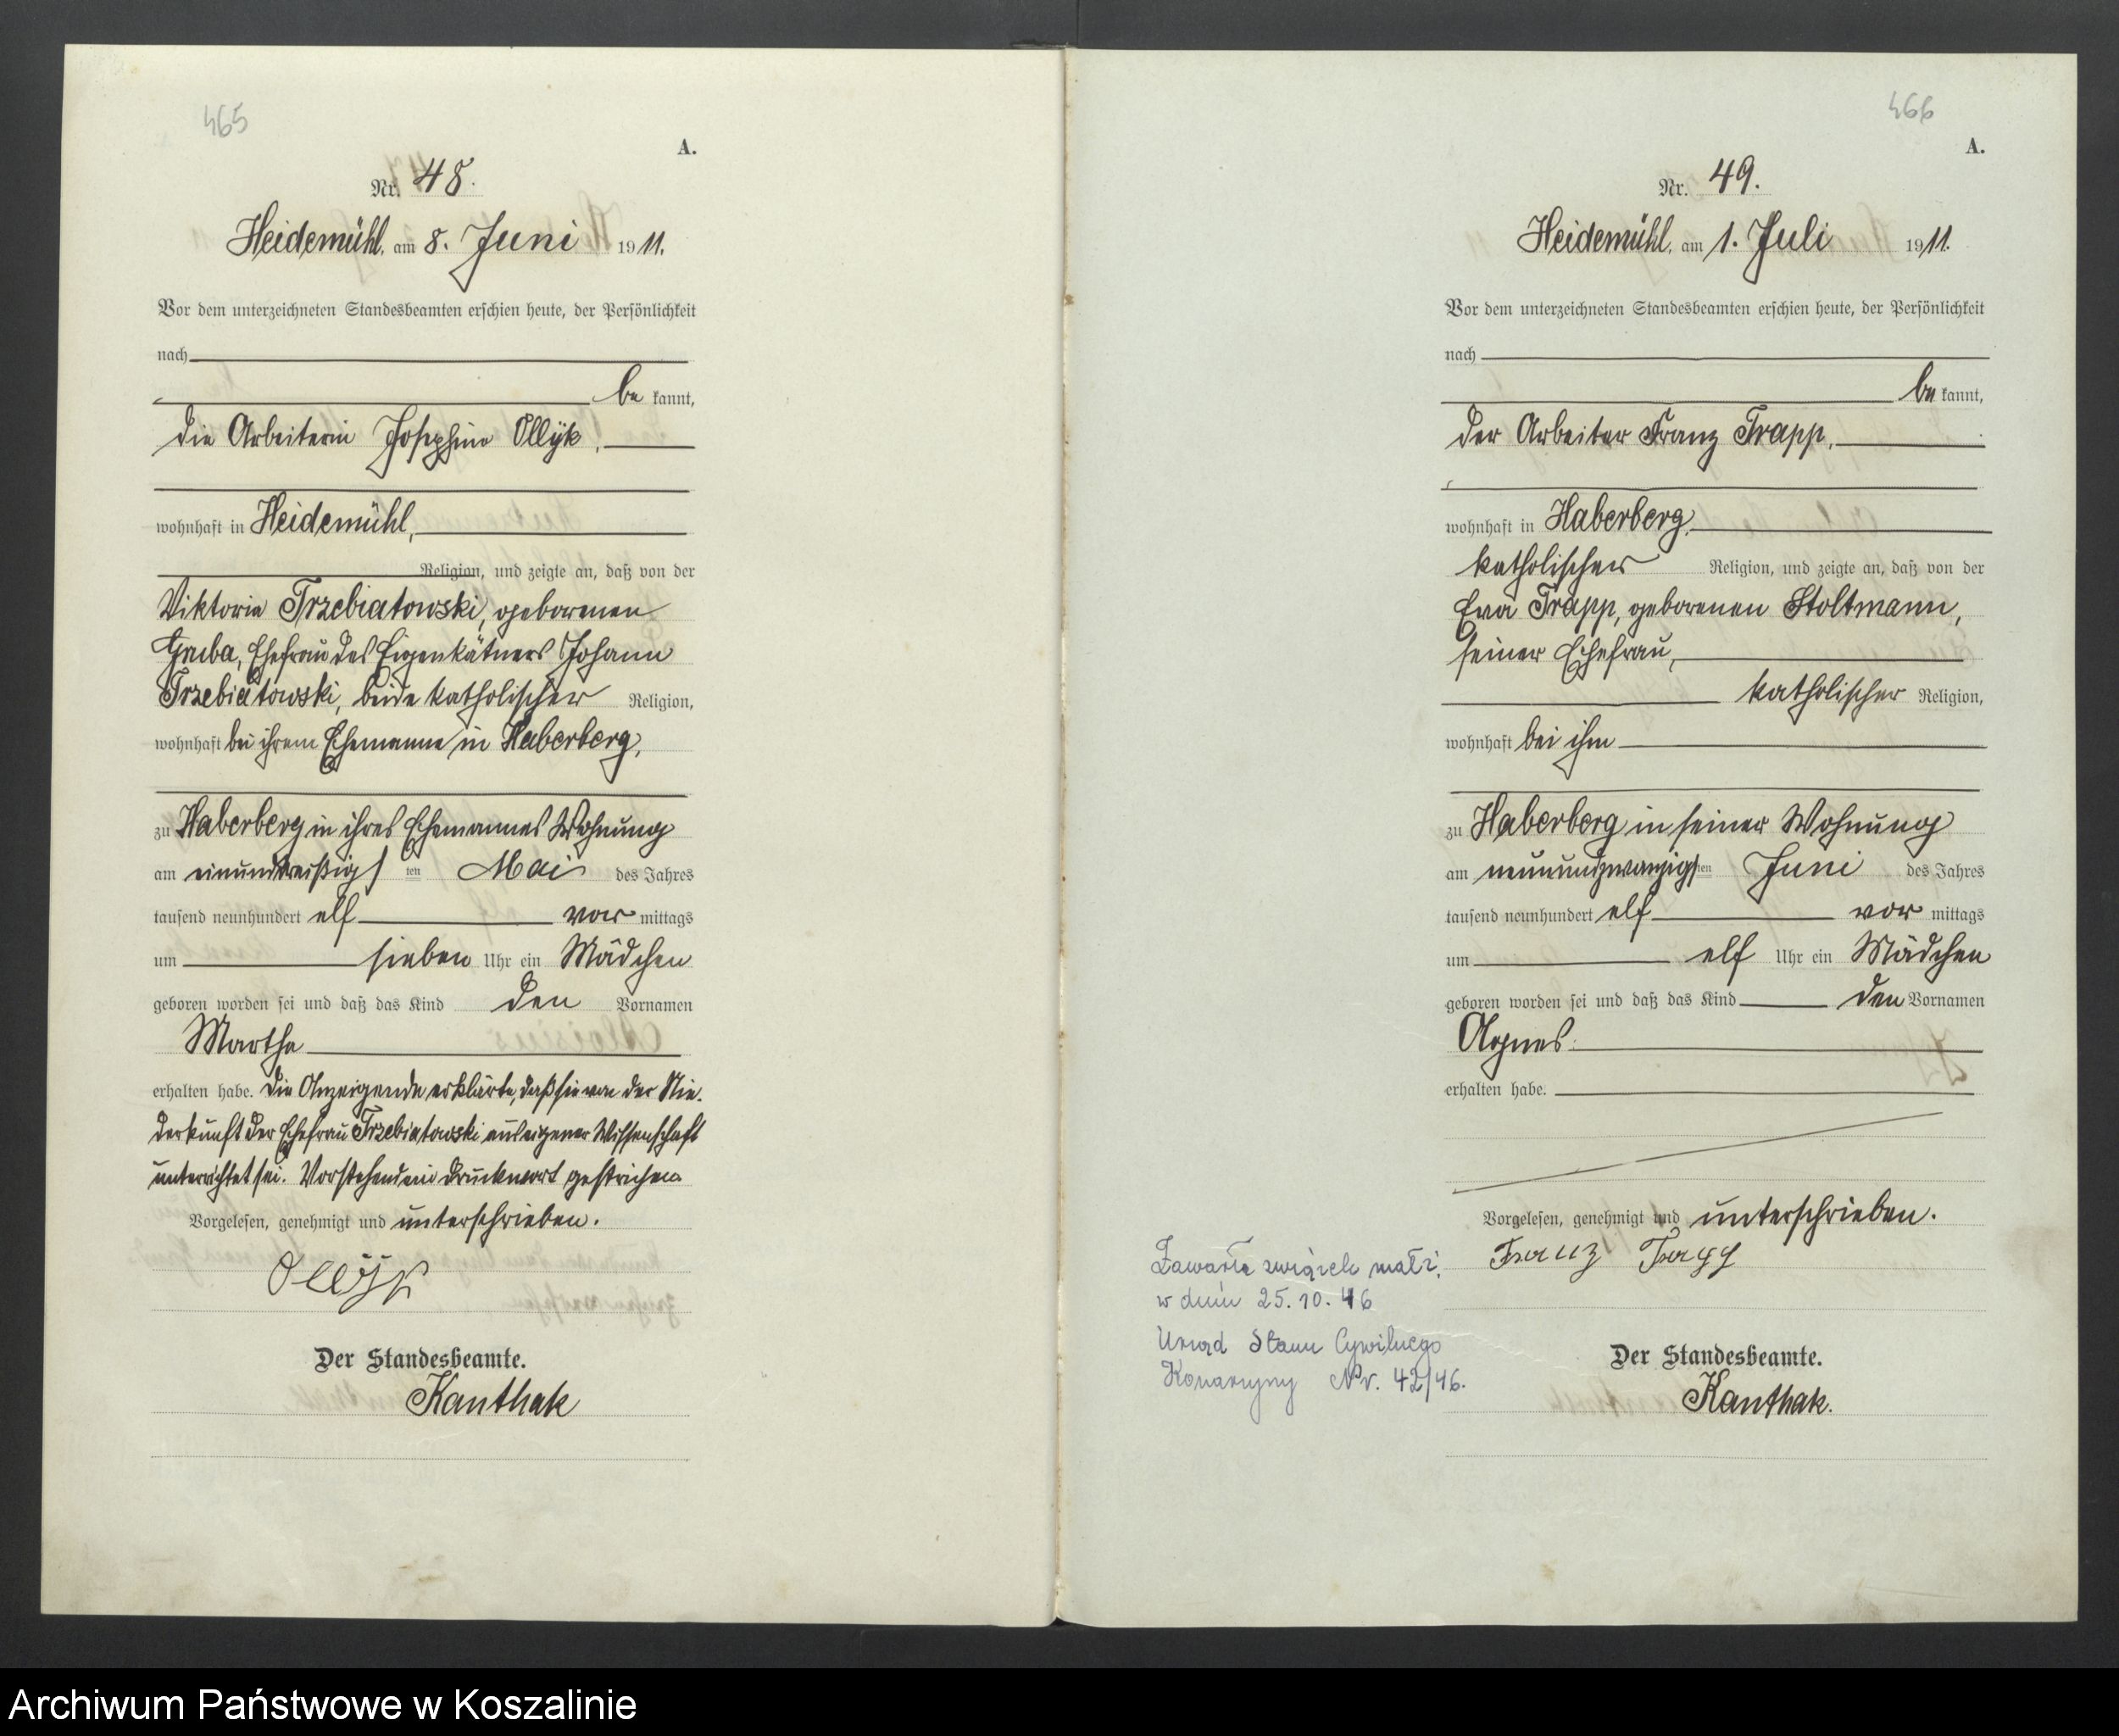 465
A.
Nr. 48.
Heidemühl, am 8. Juni 1911.
Vor dem unterzeichneten Standesbeamten erschien heute, der Persönlichkeit
nach
be kannt,
die Arbeiterin Josephine Ollÿk,
wohnhaft in Heidemühl,
Religion, und zeigte an, daß von der
Viktoria Trzebiatowski, geborenen
Gruba, Ehefrau des Eigenkätners Johann
Trzebiatowski, beide katholischer Religion,
wohnhaft bei ihrem Ehemanne in Haberberg,
zu Haberberg in ihres Ehemannes Wohnung
am einunddreißigsten Mai des Jahres
tausend neunhundert elf vor mittags
um sieben Uhr ein Mädchen
geboren worden sei und daß das Kind den Vornamen
Martha
erhalten habe. Die Anzeigende erklärte, daß sie von der Nie-
derkunft der Ehefrau Trzebiatowski aus eigener Wissenschaft
unterrichtet sei. Vorstehend ein Druckwort gestrichen
Vorgelesen, genehmigt und unterschrieben.
Ollÿk
Der Standesbeamte.
Kanthak
466
A.
Nr. 49.
Heidemühl, am 1. Juli 1911.
Vor dem unterzeichneten Standesbeamten erschien heute, der Persönlichkeit
nach
be kannt,
der Arbeiter Franz Trapp,
wohnhaft in Haberberg,
katholischer Religion, und zeigte an, daß von der
Eva Trapp, geborenen Stoltmann,
seiner Ehefrau,
katholischer Religion,
wohnhaft bei ihm
zu Haberberg in seiner Wohnung
am neunundzwanzigsten Juni des Jahres
tausend neunhundert elf vor mittags
um elf Uhr ein Mädchen
geboren worden sei und daß das Kind den Vornamen
Agnes
erhalten habe.
Vorgelesen, genehmigt und unterschrieben.
Franz Trapp
Zawarła związek małż.
w dniu 25.10.46
Urząd Stanu Cywilnego
Konarzyny Nr. 42/46.
Der Standesbeamte.
Kanthak.
Archiwum Państwowe w Koszalinie